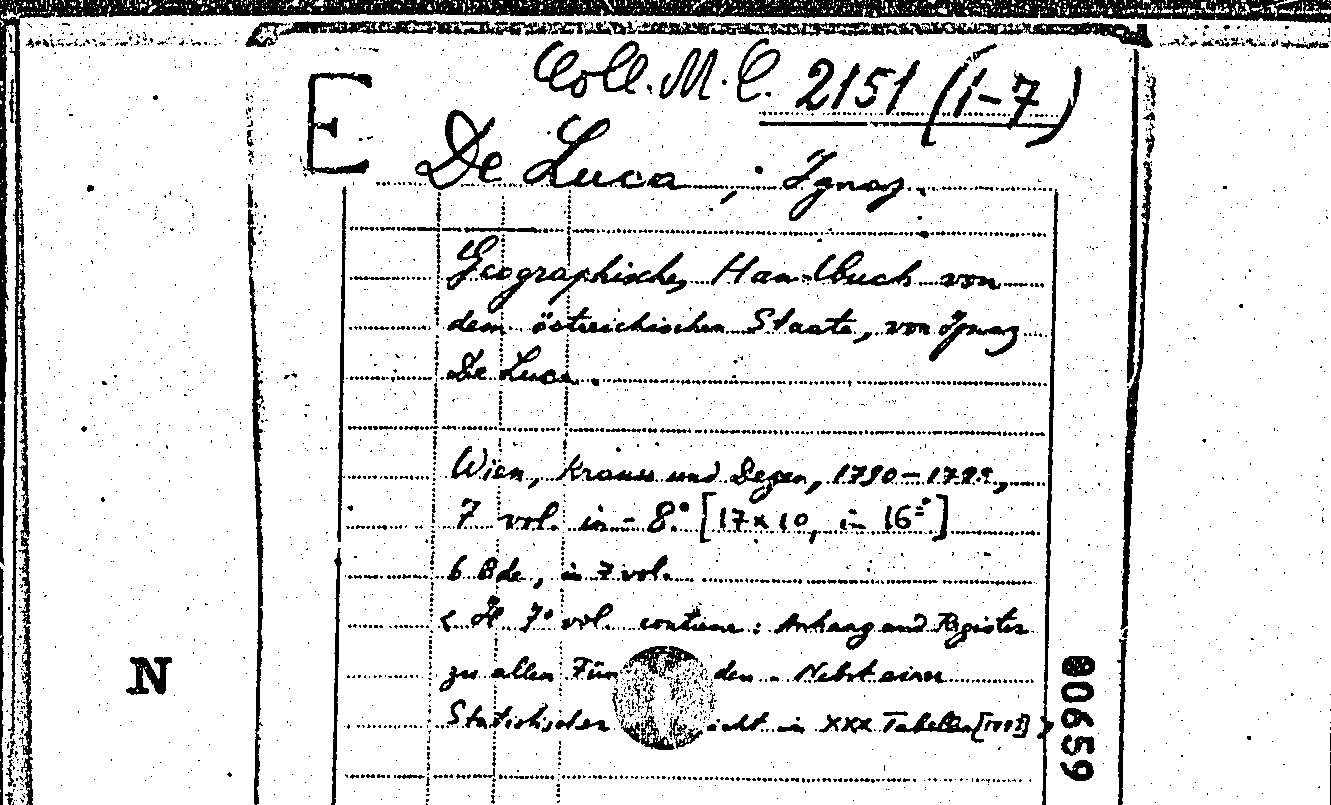 Coll. M. C. 2151 (1-7)
E
De Luca, Ignaz.
Geographisches Handbuch von
dem östreichischen Staate, von Ignaz
De Luca.
Wien, Krauss und Degen, 1790-179
7 vol. in-8.° [17x10, in 16°]
6 Bde, in 7 vol.
< Il 7° vol. contiene: Anhang und Register
zu allen Fün den. Nebst einer
Statistischen icht in XXX Tabellen
N
00659